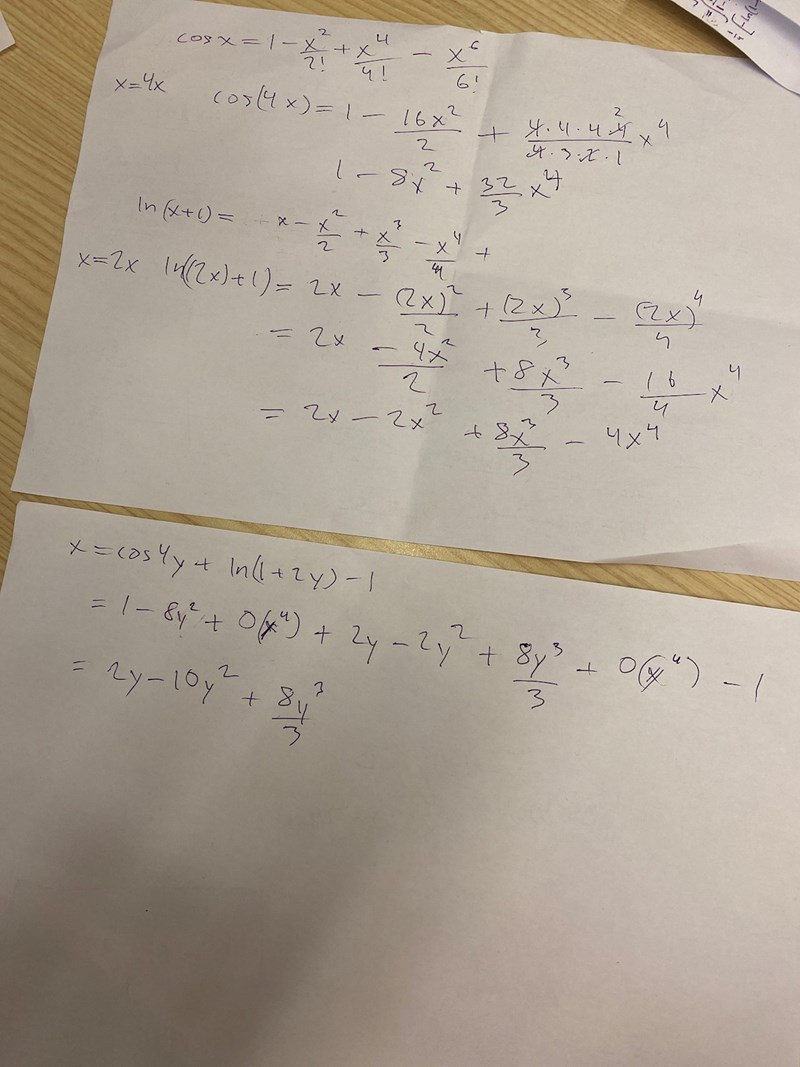 cos x = 1 - x²/2! + x⁴/4! - x⁶/6!
x=4x cos(4x) = 1 - 16x²/2 + (4·4·4·4²)/(4·3·2·1) x⁴
1 - 8x² + 32/3 x⁴
ln(x+1) = x - x²/2 + x³/3 - x⁴/4 +
x=2x ln((2x)+1) = 2x - (2x)²/2 + (2x)³/3 - (2x)⁴/4
= 2x - 4x²/2 + 8x³/3 - 16/4 x⁴
= 2x - 2x² + 8x³/3 - 4x⁴
x = cos4y + ln(1+2y) - 1
= 1 - 8y² + O(y⁴) + 2y - 2y² + 8y³/3 + O(y⁴) - 1
= 2y - 10y² + 8y³/3